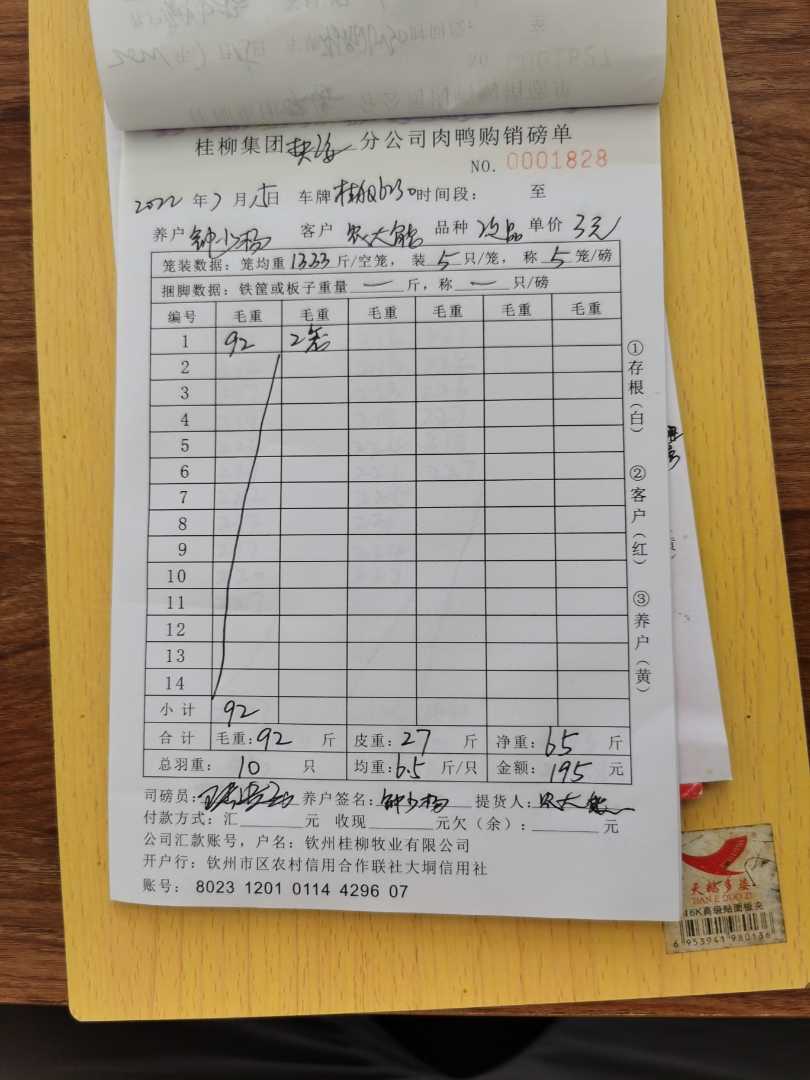 桂柳集团 分公司肉鸭购销磅单
NO. 0001828
2022 年 7 月 15 日 车牌 桂 时间段： 至
养户 钟少杨 客户 农大能 品种 次品 单价 3元
笼装数据：笼均重 13.33 斤/空笼，装 5 只/笼，称 5 笼/磅
捆脚数据：铁筐或板子重量 一 斤，称 一 只/磅
编号 毛重 毛重 毛重 毛重 毛重 毛重
1 92 2笼
2
3
4
5
6
7
8
9
10
11
12
13
14
小计 92
合计 毛重：92 斤 皮重：27 斤 净重：65 斤
总羽重： 10 只 均重：6.5 斤/只 金额：195 元
司磅员： 养户签名：钟少杨 提货人：农大能
付款方式：汇 元 收现 元欠（余）： 元
公司汇款账号，户名：钦州桂柳牧业有限公司
开户行：钦州市区农村信用合作联社大垌信用社
账号： 8023 1201 0114 4296 07
①存根（白） ②客户（红） ③养户（黄）
天鹅多姿
TIAN E DUO ZI
16K高级贴面板夹
6 953941 980136